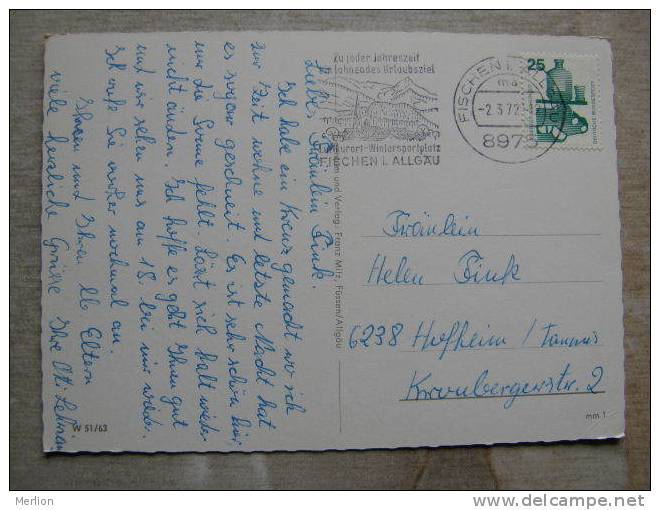 Liebes Fräulein Fink.
Ich habe ein Kreuz gemacht wo ich
zur Zeit wohne und letzte Nacht hat
es sogar geschneit. Es ist sehr schön hier,
nur die Sonne fehlt. Lässt sich halt wieder
nicht ändern. Ich hoffe es geht Ihnen gut
und wir sehen uns am 18. bei mir wieder.
Ich rufe Sie vorher nochmal an.
Ihnen und Ihren lb Eltern
viele herzliche Grüsse Ihre
Zu jeder Jahreszeit
ein lohnendes Urlaubsziel
Kurort-Wintersportplatz
FISCHEN I. ALLGÄU
FISCHEN I. ALLG
-2.3.72
8975
25
und Verlag: Franz Milz, Füssen/Allgäu
Fräulein
Helen Fink
6238 Hofheim / Taunus
Kronbergerstr. 2
W 51/63
mm 1
Merlion
www.delcampe.net